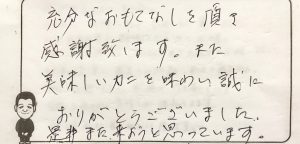 充分なおもてなしを頂き
感謝致します。また
美味しいカニを味わい誠に
ありがとうございました。
是非また来ようと思っています。